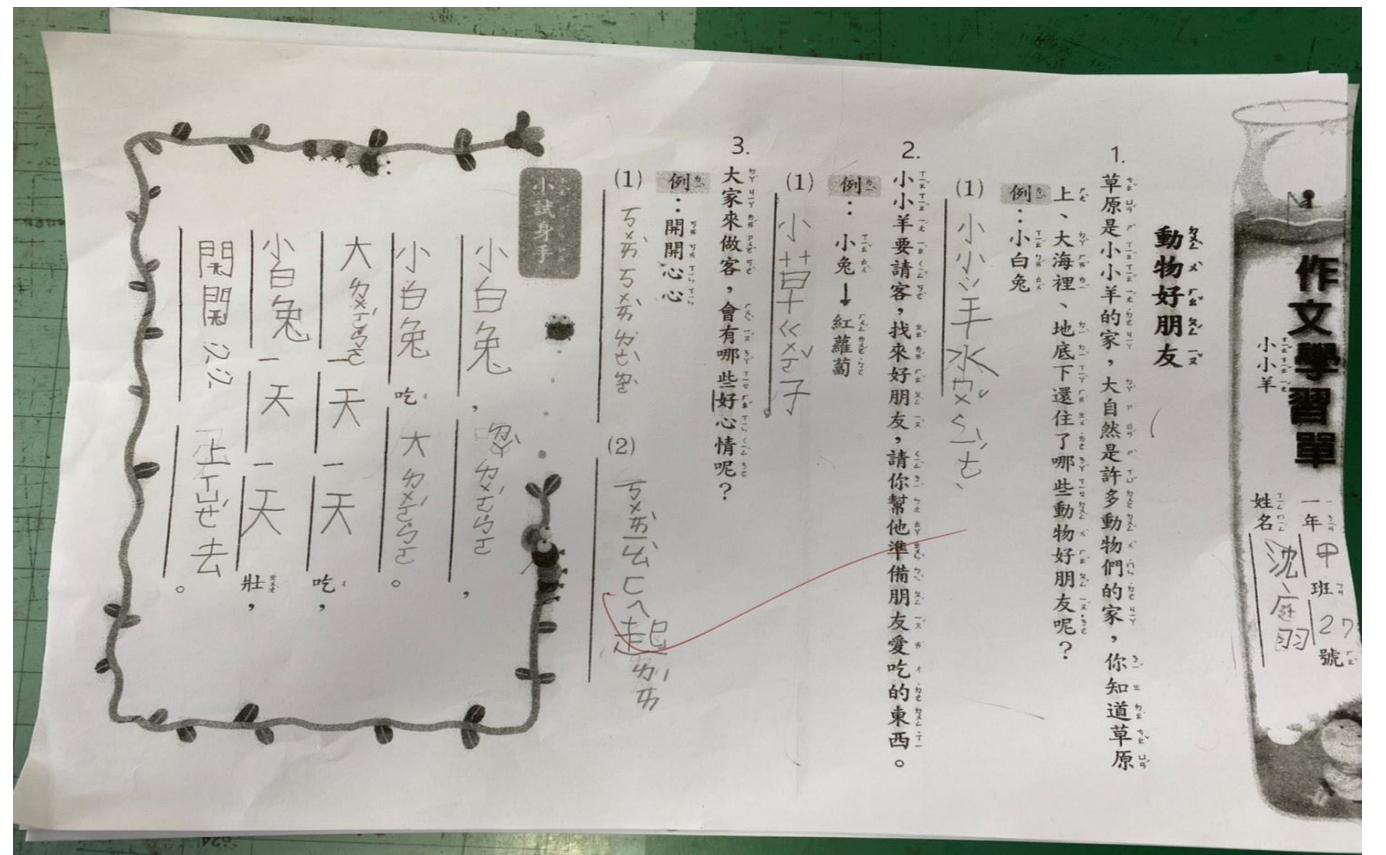 作文學習單
小小羊
一年甲班27號
姓名沈庭羽
動物好朋友
1. 草原是小小羊的家，大自然是許多動物們的家，你知道草原
上、大海裡、地底下還住了哪些動物好朋友呢？
例：小白兔
(1) 小小羊
2. 小小羊要請客，找來好朋友，請你幫他準備朋友愛吃的東西。
例：小兔→紅蘿蔔
(1) 小草ㄍㄨㄛˇ子。
3. 大家來做客，會有哪些好心情呢？
例：開開心心
(1) ㄎㄨㄞˋㄎㄨㄞˋㄌㄜˋㄌㄜˋ
(2)
小試身手
小白兔，，
小白兔吃大ㄌㄨㄛˊㄅㄛ。
大ㄌㄨㄛˊㄅㄛ一天一天吃，
小白兔一天一天壯，
開開心心上ㄒㄩㄝˊ去。